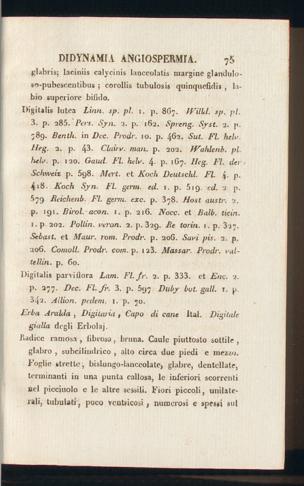 DIDYNAMIA ANGIOSPERMIA. 75
glabris; laciniis calycinis lanceolatis margine glandulo-
so-pubescentibus; corollis tubulosis quinquefidis, la-
bio superiore bifido.
Digitalis lutea Linn. sp. pl. 1. p. 867. Willd. sp. pl.
3. p. 285. Pers. Syn. 2. p. 162. Spreng. Syst. 2. p.
789. Benth. in Dec. Prodr. 10. p. 462. Sut. Fl. helv.
Heg. 2. p. 43. Clairv. man. p. 202. Wahlenb. pl.
helv. p. 120. Gaud. Fl. helv. 4. p. 167. Heg. Fl. der
Schweix p. 598. Mert. et Koch Deutschl. Fl. 4. p.
418. Koch Syn. Fl. germ. ed. 1. p. 519. ed. 2 p.
579 Reichenb. Fl. germ. exc. p. 378. Host austr. 2.
p. 191. Birol. acon. 1. p. 216. Nocc. et Balb. ticin.
1. p. 202. Pollin. veron. 2. p. 329. Re torin. 1. p. 327.
Sebast. et Maur. rom. Prodr. p. 206. Savi pis. 2. p.
206. Comoll. Prodr. com. p. 123. Massar. Prodr. val-
tellin. p. 60.
Digitalis parviflora Lam. Fl. fr. 2. p. 333. et Enc. 2.
p. 277. Dec. Fl. fr. 3. p. 597 Duby bot. gall. 1. p.
342. Allion. pedem. 1. p. 70.
Erba Aralda, Digitaria, Capo di cane Ital. Digitale
gialla degli Erbolaj.
Radice ramosa, fibrosa, bruna. Caule piuttosto sottile,
glabro, subcilindrico, alto circa due piedi e mezzo.
Foglie strette, bislungo-lanceolate, glabre, dentellate,
terminanti in una punta callosa, le inferiori scorrenti
nel picciuolo e le altre sessili. Fiori piccoli, unilate-
rali, tubulati, poco ventricosi, numerosi e spessi sul